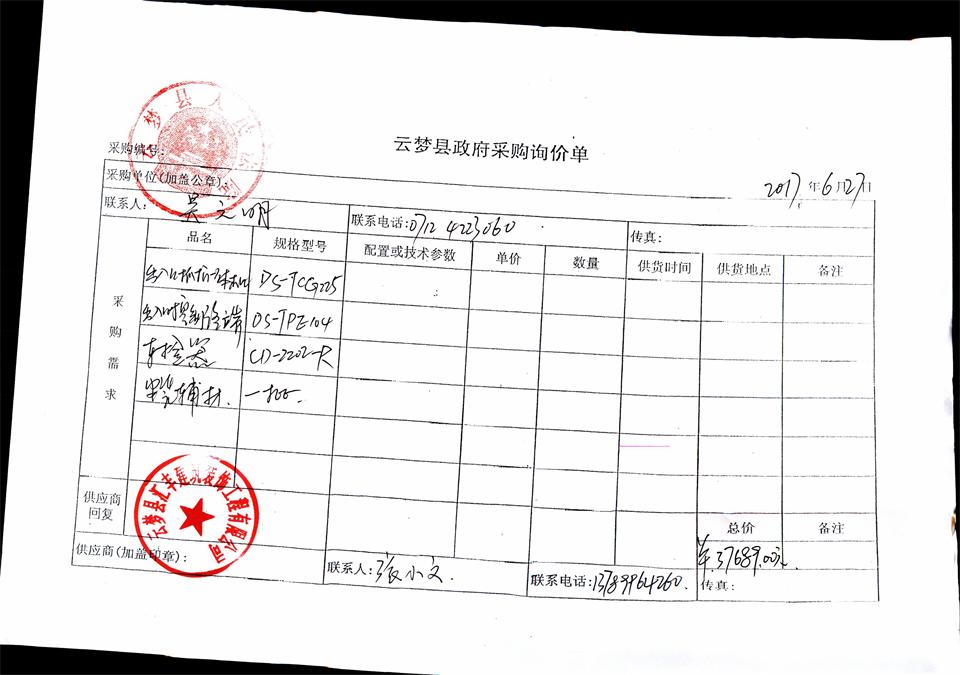 云梦县政府采购询价单
采购编号:
采购单位(加盖公章)
2017年6月27日
联系人: 吴立明
联系电话:0712 4223060
传真:
采购需求
品名
规格型号
配置或技术参数
单价
数量
供货时间
供货地点
备注
DS-TCG225
DS-TPE104
车检器
CD-2202-R
辅材.
一批.
供应商回复
总价
备注
¥:37689.00元.
供应商(加盖印章):
云梦县汇丰建筑装饰工程有限公司
联系人:张小文.
联系电话:13789964260.
传真: